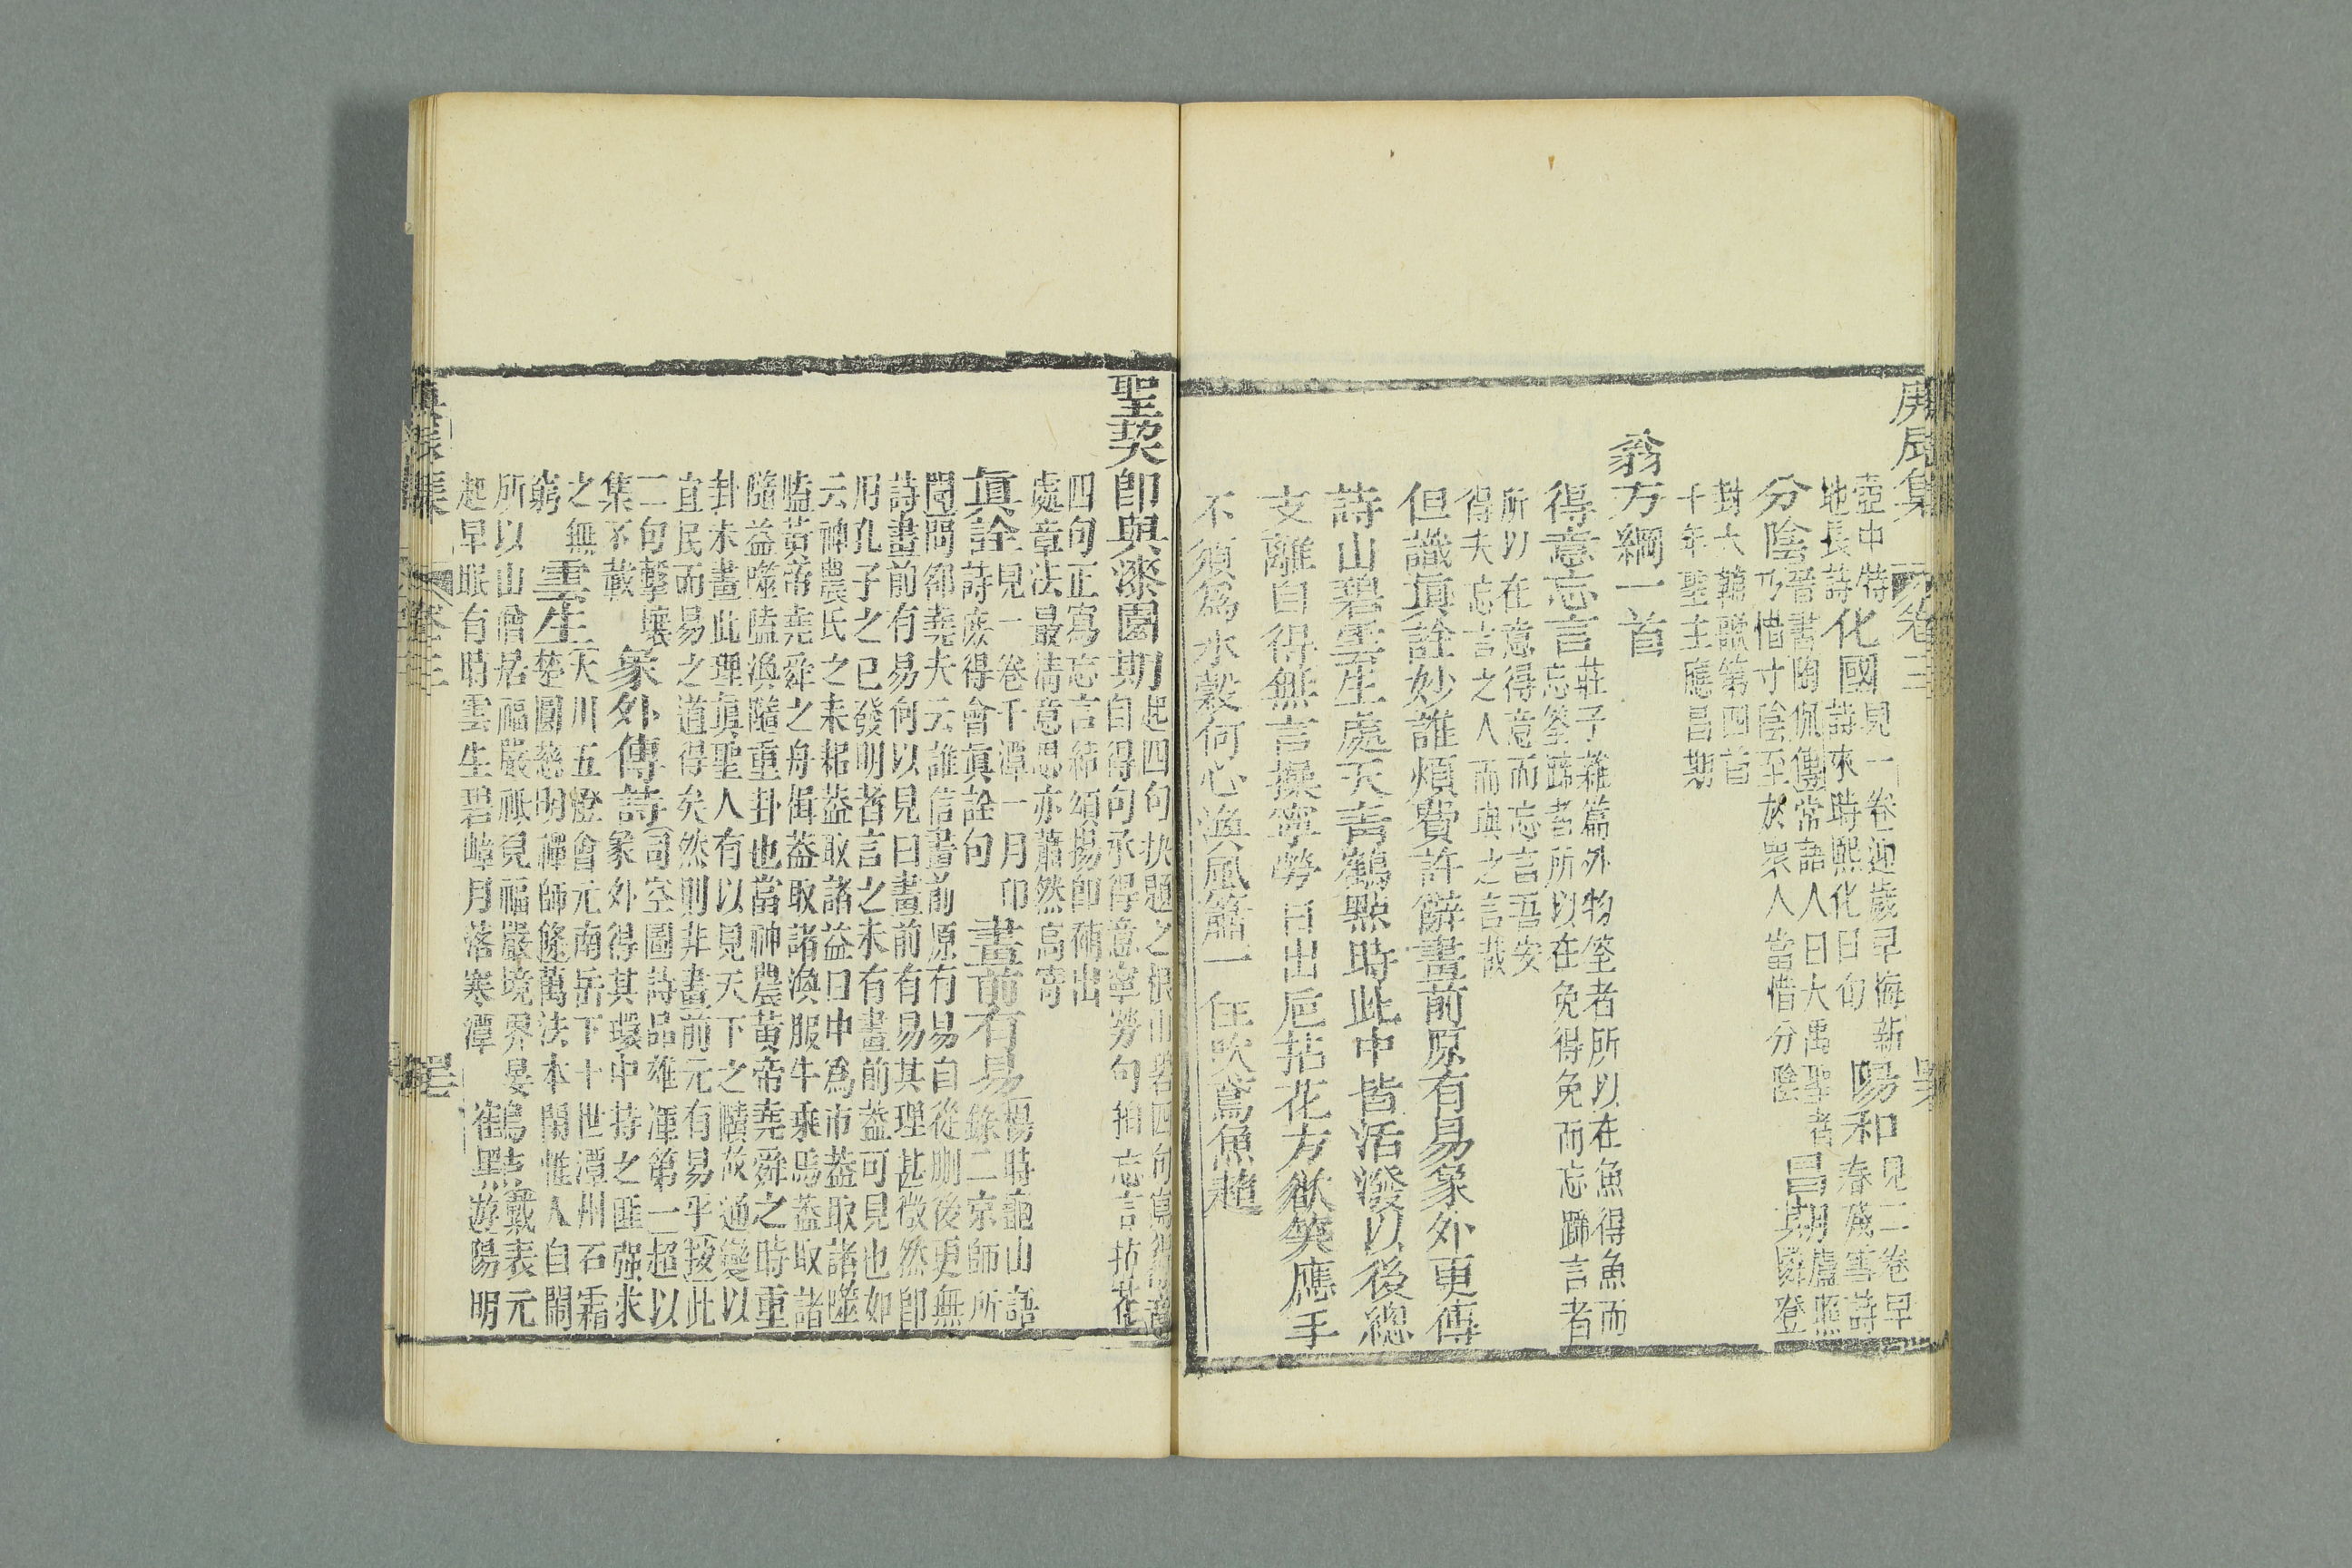 庚辰集 卷三
壺中特 見一卷迎歲早梅新
地長詩
化國
詩來時熙化日句
陽和
見二卷早
春殘雪詩
分陰
晉書陶侃傳常語人曰大禹聖者
乃惜寸陰至於衆人當惜分陰
昌期
盧照
隣登
封大酺歌第四首
十年聖主應昌期
翁方綱一首
得意忘言
莊子雜篇外物筌者所以在魚得魚而
忘筌蹄者所以在兔得兔而忘蹄言者
所以在意得意而忘言吾安
得夫忘言之人而與之言哉
但識眞詮妙誰煩費許辭畫前原有易象外更傳
詩山碧雲生處天靑鶴點時此中皆活潑以後總
支離自得無言操寧勞日出巵拈花方欲笑應手
不須爲水縠何心渙風簫一任吹鳶魚趣
聖契卽與漆園期
自得句承得意寧勞句拍忘言拈花
四句正寫忘言結頌揚卽補出
處章法最淸意思亦蕭然高寄
眞詮
見一卷千潭一月印
詩庶得會眞詮句
畫前有易
楊時龜山語
錄二京師所
聞問邵堯夫云誰信畫前原有易自從刪後更無
詩畫前有易何以見曰畫前有易其理甚微然卽
用孔子之已發明者言之未有畫前益可見也如
云神農氏之耒耜蓋取諸益日中爲市蓋取諸噬
嗑黃帝堯舜之舟楫蓋取諸渙服牛乘馬蓋取諸
隨益噬嗑渙隨重卦也當神農黃帝堯舜之時重
卦未畫此理眞聖人有以見天下之賾故通變以
宜民而易之道得矣然則非畫前元有易乎按此
二句擊壤
集不載
象外傳詩
司空圖詩品雄渾第一超以
象外得其環中持之匪强求
之無
窮
雲生
天川五燈會元南岳下十世潭州石霜
楚圓慈明禪師隨萬法本閒惟人自閙
所以山僧居福嚴祇見福嚴境界晏
起早眠有時雲生碧嶂月落寒潭
鶴點
戴表元
遊陽明